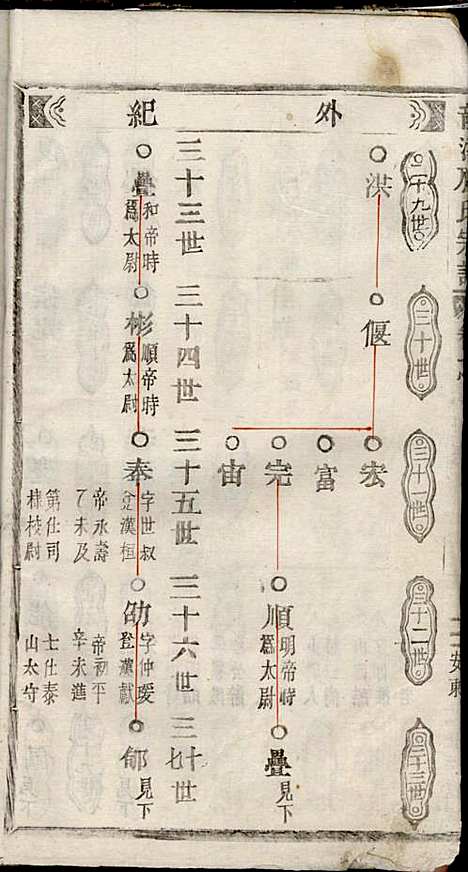 氏宗譜
外紀
二十九世
三十世
三十一世
三十二世
三十三世
洪
偃
宏
富
完
宙
順 明帝時
為太尉
疊 見下
三十三世
三十四世
三十五世
三十六世
三十七世
疊 和帝時
為太尉
彬 順帝時
為太尉
奉 字世叔
登漢桓
帝永壽
乙未及
第仕司
棣校尉
劭 字仲瑗
登漢獻
帝初平
辛未進
士仕泰
山太守
見下